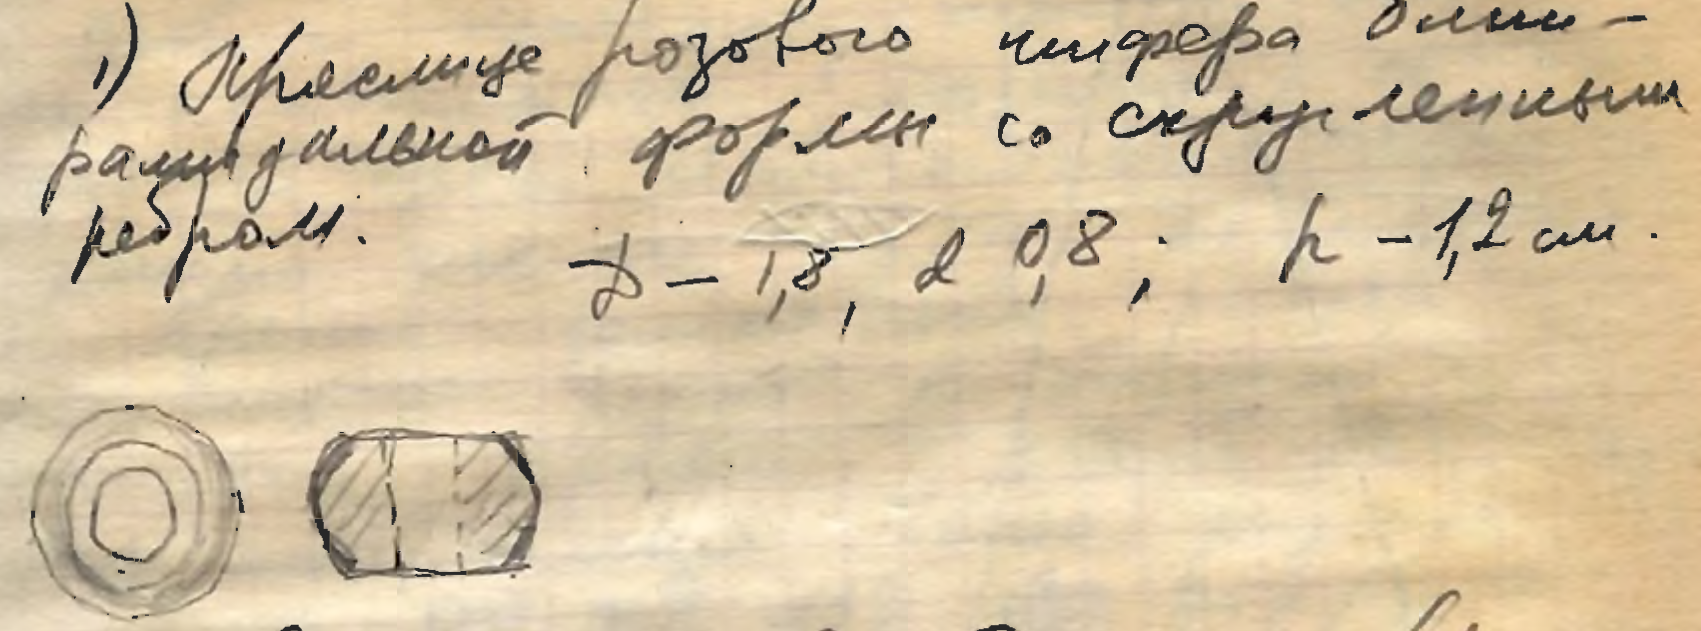 1) Пряслице розового шифера бипи-
рамидальной формы со скругленным
ребром.
D – 1,8, d 0,8; h – 1,2 см.